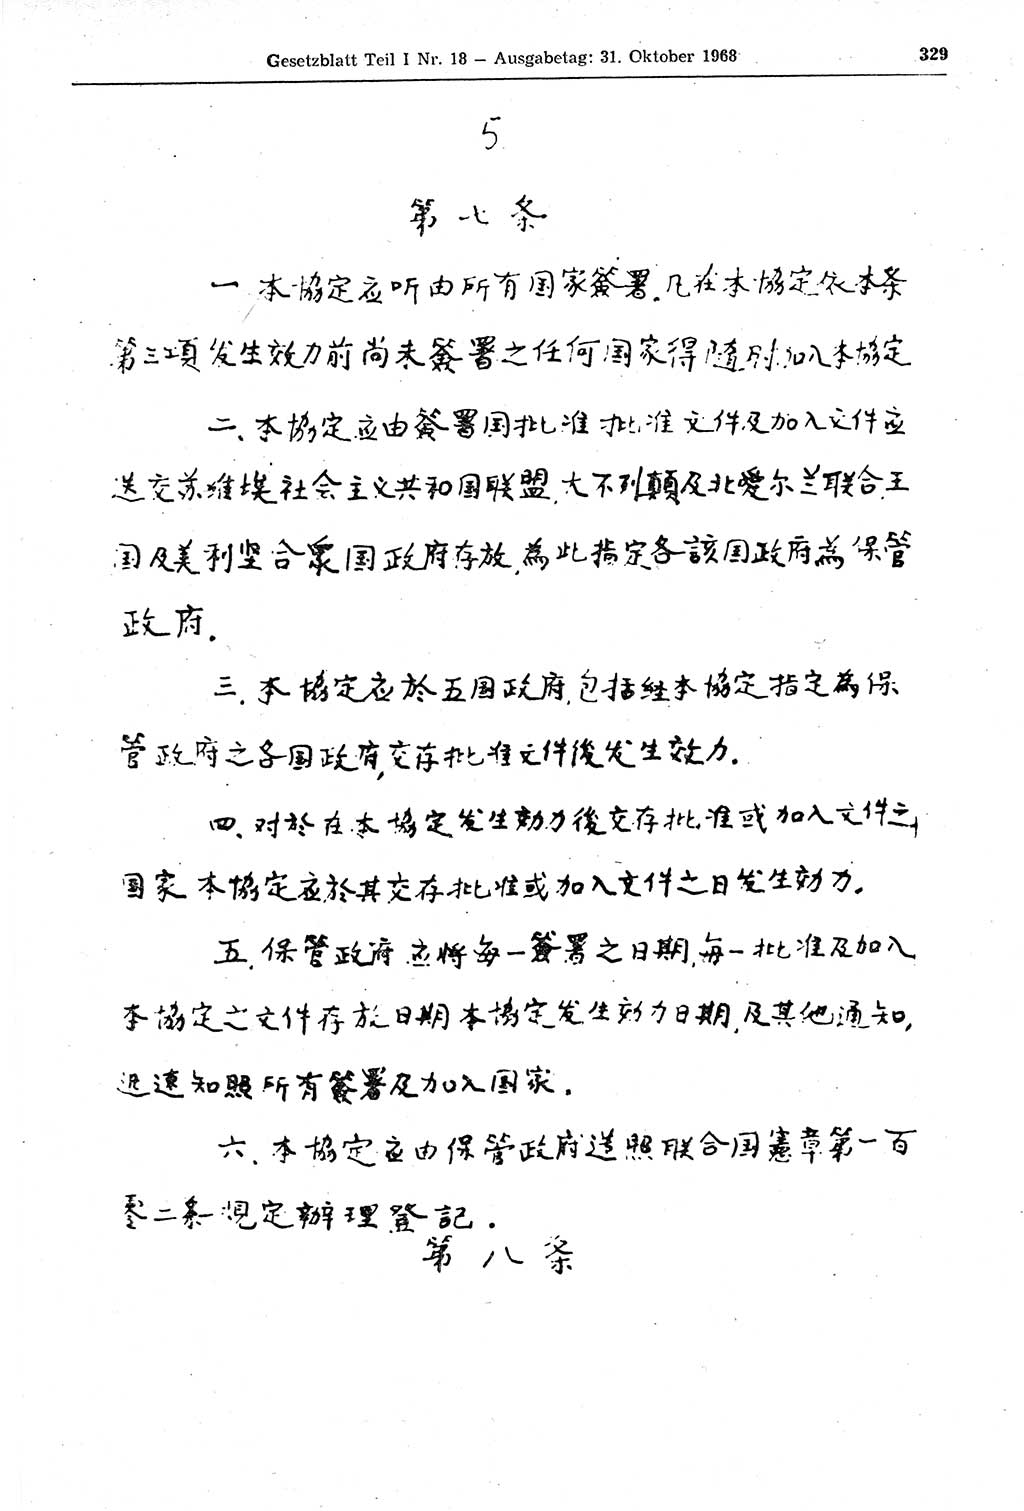 Gesetzblatt Teil I Nr. 18 — Ausgabetag: 31. Oktober 1968 329
5
第七条
一本協定应听由所有国家簽署.凡在本協定依本条
第三項发生效力前尚未簽署之任何国家得隨时加入本協定
二、本協定应由簽署国批准批准文件及加入文件应
送交苏維埃社会主义共和国联盟,大不列顛及北愛尔兰联合王
国及美利坚合衆国政府存放,為此指定各該国政府為保管
政府.
三.本協定应於五国政府,包括経本協定指定為保
管政府之各国政府,交存批准文件後发生效力.
四、对於在本協定发生効力後交存批准或加入文件之
国家本協定应於其交存批准或加入文件之日发生効力.
五.保管政府应将每一簽署之日期,每一批准及加入
本協定之文件存放日期本協定发生効力日期,及其他通知,
迅速知照所有簽署及加入国家.
六.本協定应由保管政府遵照联合国憲章第一百
零二条規定辦理登記.
第八条